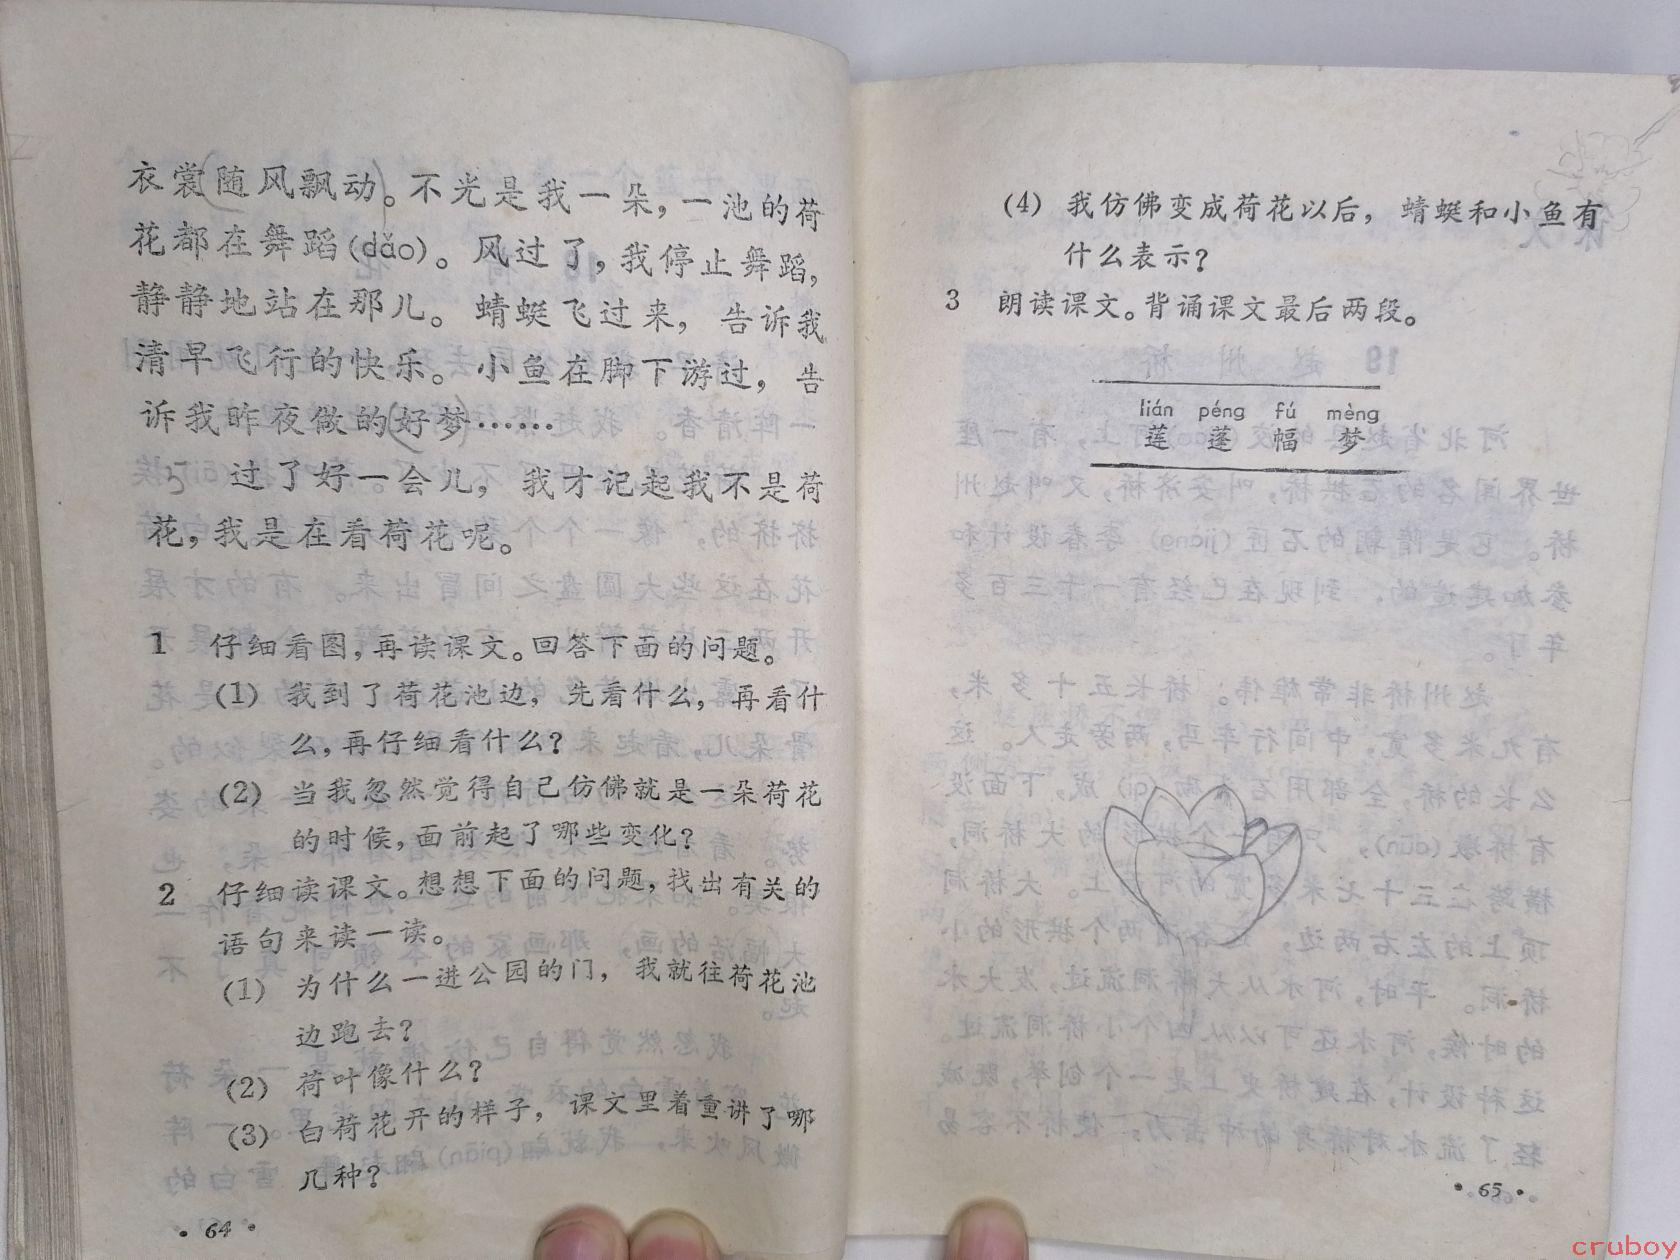 衣裳随风飘动。不光是我一朵，一池的荷
花都在舞蹈(dǎo)。风过了，我停止舞蹈，
静静地站在那儿。蜻蜓飞过来，告诉我
清早飞行的快乐。小鱼在脚下游过，告
诉我昨夜做的好梦……
5 过了好一会儿，我才记起我不是荷
花，我是在看荷花呢。
1 仔细看图，再读课文。回答下面的问题。
(1) 我到了荷花池边，先看什么，再看什
么，再仔细看什么？
(2) 当我忽然觉得自己仿佛就是一朵荷花
的时候，面前起了哪些变化？
2 仔细读课文。想想下面的问题，找出有关的
语句来读一读。
(1) 为什么一进公园的门，我就往荷花池
边跑去？
(2) 荷叶像什么？
(3) 白荷花开的样子，课文里着重讲了哪
几种？
• 64 •
(4) 我仿佛变成荷花以后，蜻蜓和小鱼有
什么表示？
3 朗读课文。背诵课文最后两段。
lián péng fú mèng
莲 蓬 幅 梦
• 65 •
cruboy